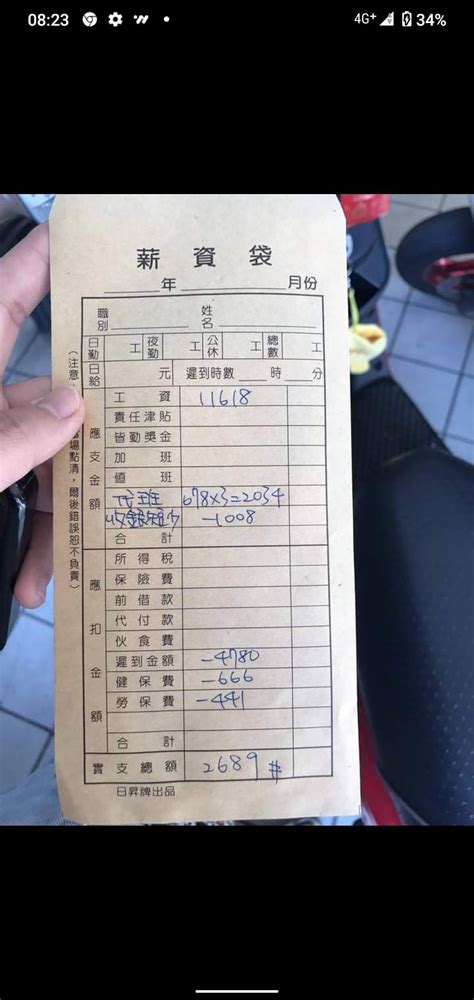 08:23
4G+ 34%
薪資袋
年 月份
職別 姓名
日勤 工 夜勤 工 公休 工 總數 工
日給 元 遲到時數 時 分
應支金額
工資 11618
責任津貼
皆勤獎金
加班
值班
代班 678x3=2034
收銀短少 -1008
合計
應扣金額
所得稅
保險費
前借款
代付款
伙食費
遲到金額 -4780
健保費 -666
勞保費 -441
合計
實支總額 2689 #
日昇牌出品
(注意: 場點清,爾後錯誤恕不負責)